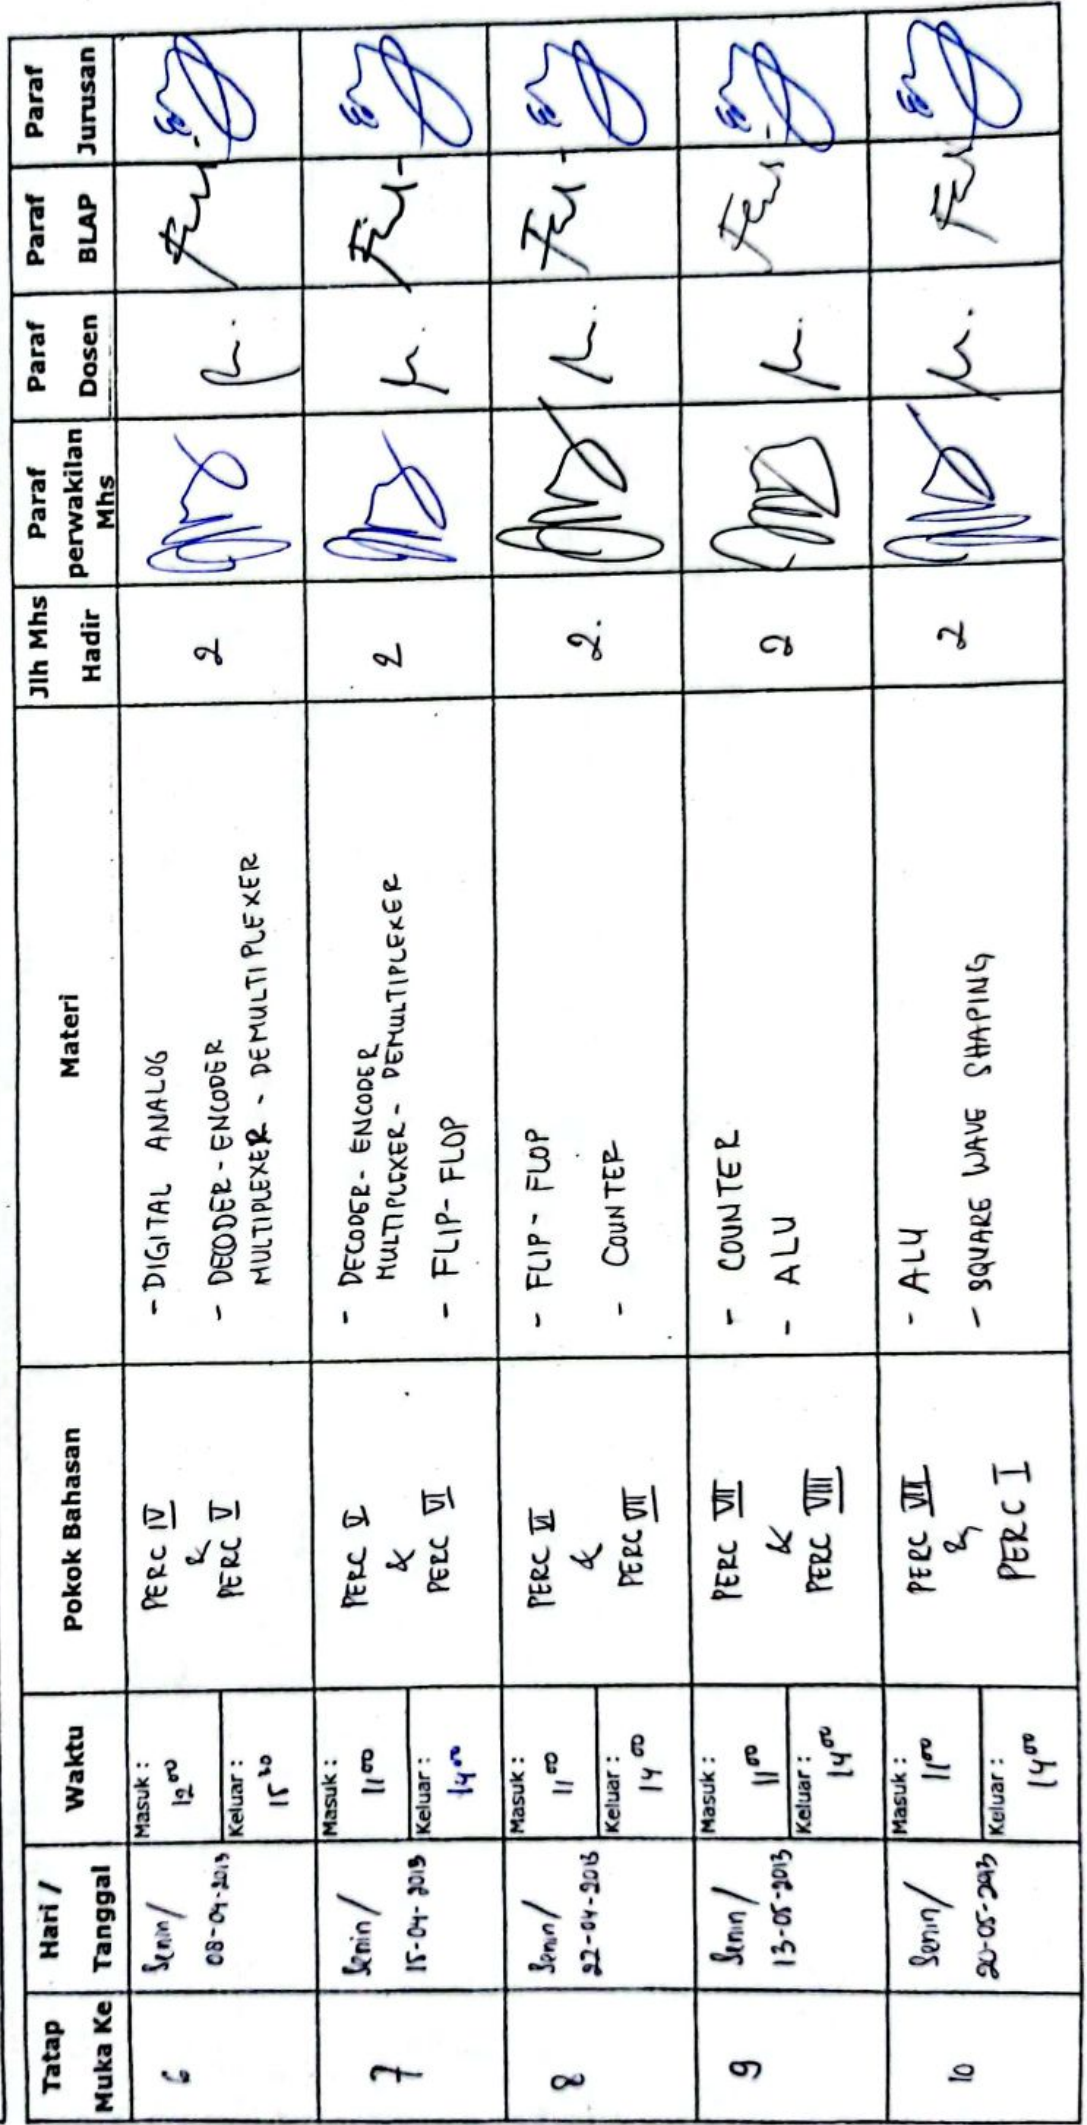 Tatap Muka Ke
Hari / Tanggal
Waktu
Pokok Bahasan
Materi
Jlh Mhs Hadir
Paraf perwakilan Mhs
Paraf Dosen
Paraf BLAP
Paraf Jurusan
6
Senin/
08-04-2013
Masuk :
12 00
Keluar :
15
PERC IV
&
PERC V
- DIGITAL ANALOG
- DECODER - ENCODER
MULTIPLEXER - DEMULTIPLEXER
2
7
Senin/
15-04-2013
Masuk :
11 00
Keluar :
14 00
PERC V
&
PERC VI
- DECODER - ENCODER
MULTIPLEXER - DEMULTIPLEXER
- FLIP-FLOP
2
8
Senin/
22-04-2013
Masuk :
11 00
Keluar :
14 00
PERC VI
&
PERC VII
- FLIP-FLOP
- COUNTER
2.
9
Senin/
13-05-2013
Masuk :
11 00
Keluar :
14 00
PERC VII
&
PERC VIII
- COUNTER
- ALU
2
10
Senin/
20-05-2013
Masuk :
11 00
Keluar :
14 00
PERC VIII
&
PERC I
- ALU
- SQUARE WAVE SHAPING
2